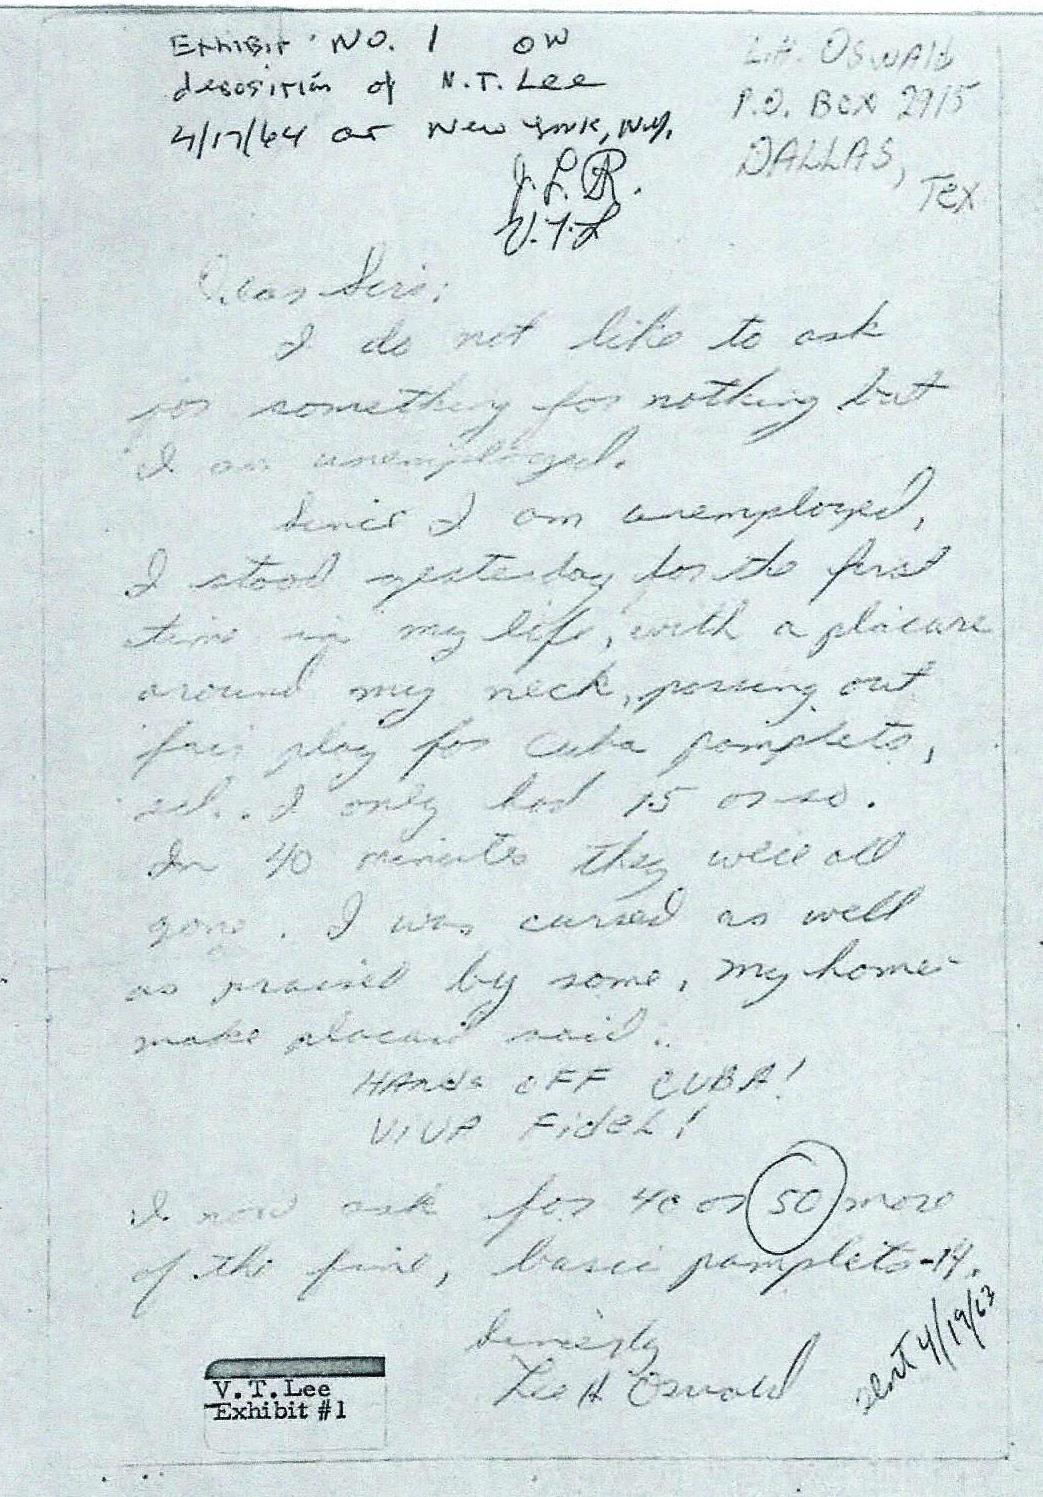 Exhibit NO. 1 on
deposition of V.T. Lee
4/17/64 at New York, N.Y.
J.L.R.
V.T.L
L.H. OSWALD
P.O. BOX 2915
DALLAS, TEX
Dear Sirs:
I do not like to ask
for something for nothing but
I am unemployed.
Since I am unemployed,
I stood yesterday for the first
time in my life, with a placare
around my neck, passing out
fair play for Cuba pamplets,
I only had 15 or so.
In 40 minutes they were all
gone. I was cursed as well
as praised by some, my home-
make placard said:
HANds OFF CUBA!
VIVA FidEL!
I now ask for 40 or 50 more
of the fine, basic pamplets-14.
Sincerly
Lee H Oswald
sent 4/19/63
V.T.Lee
Exhibit #1